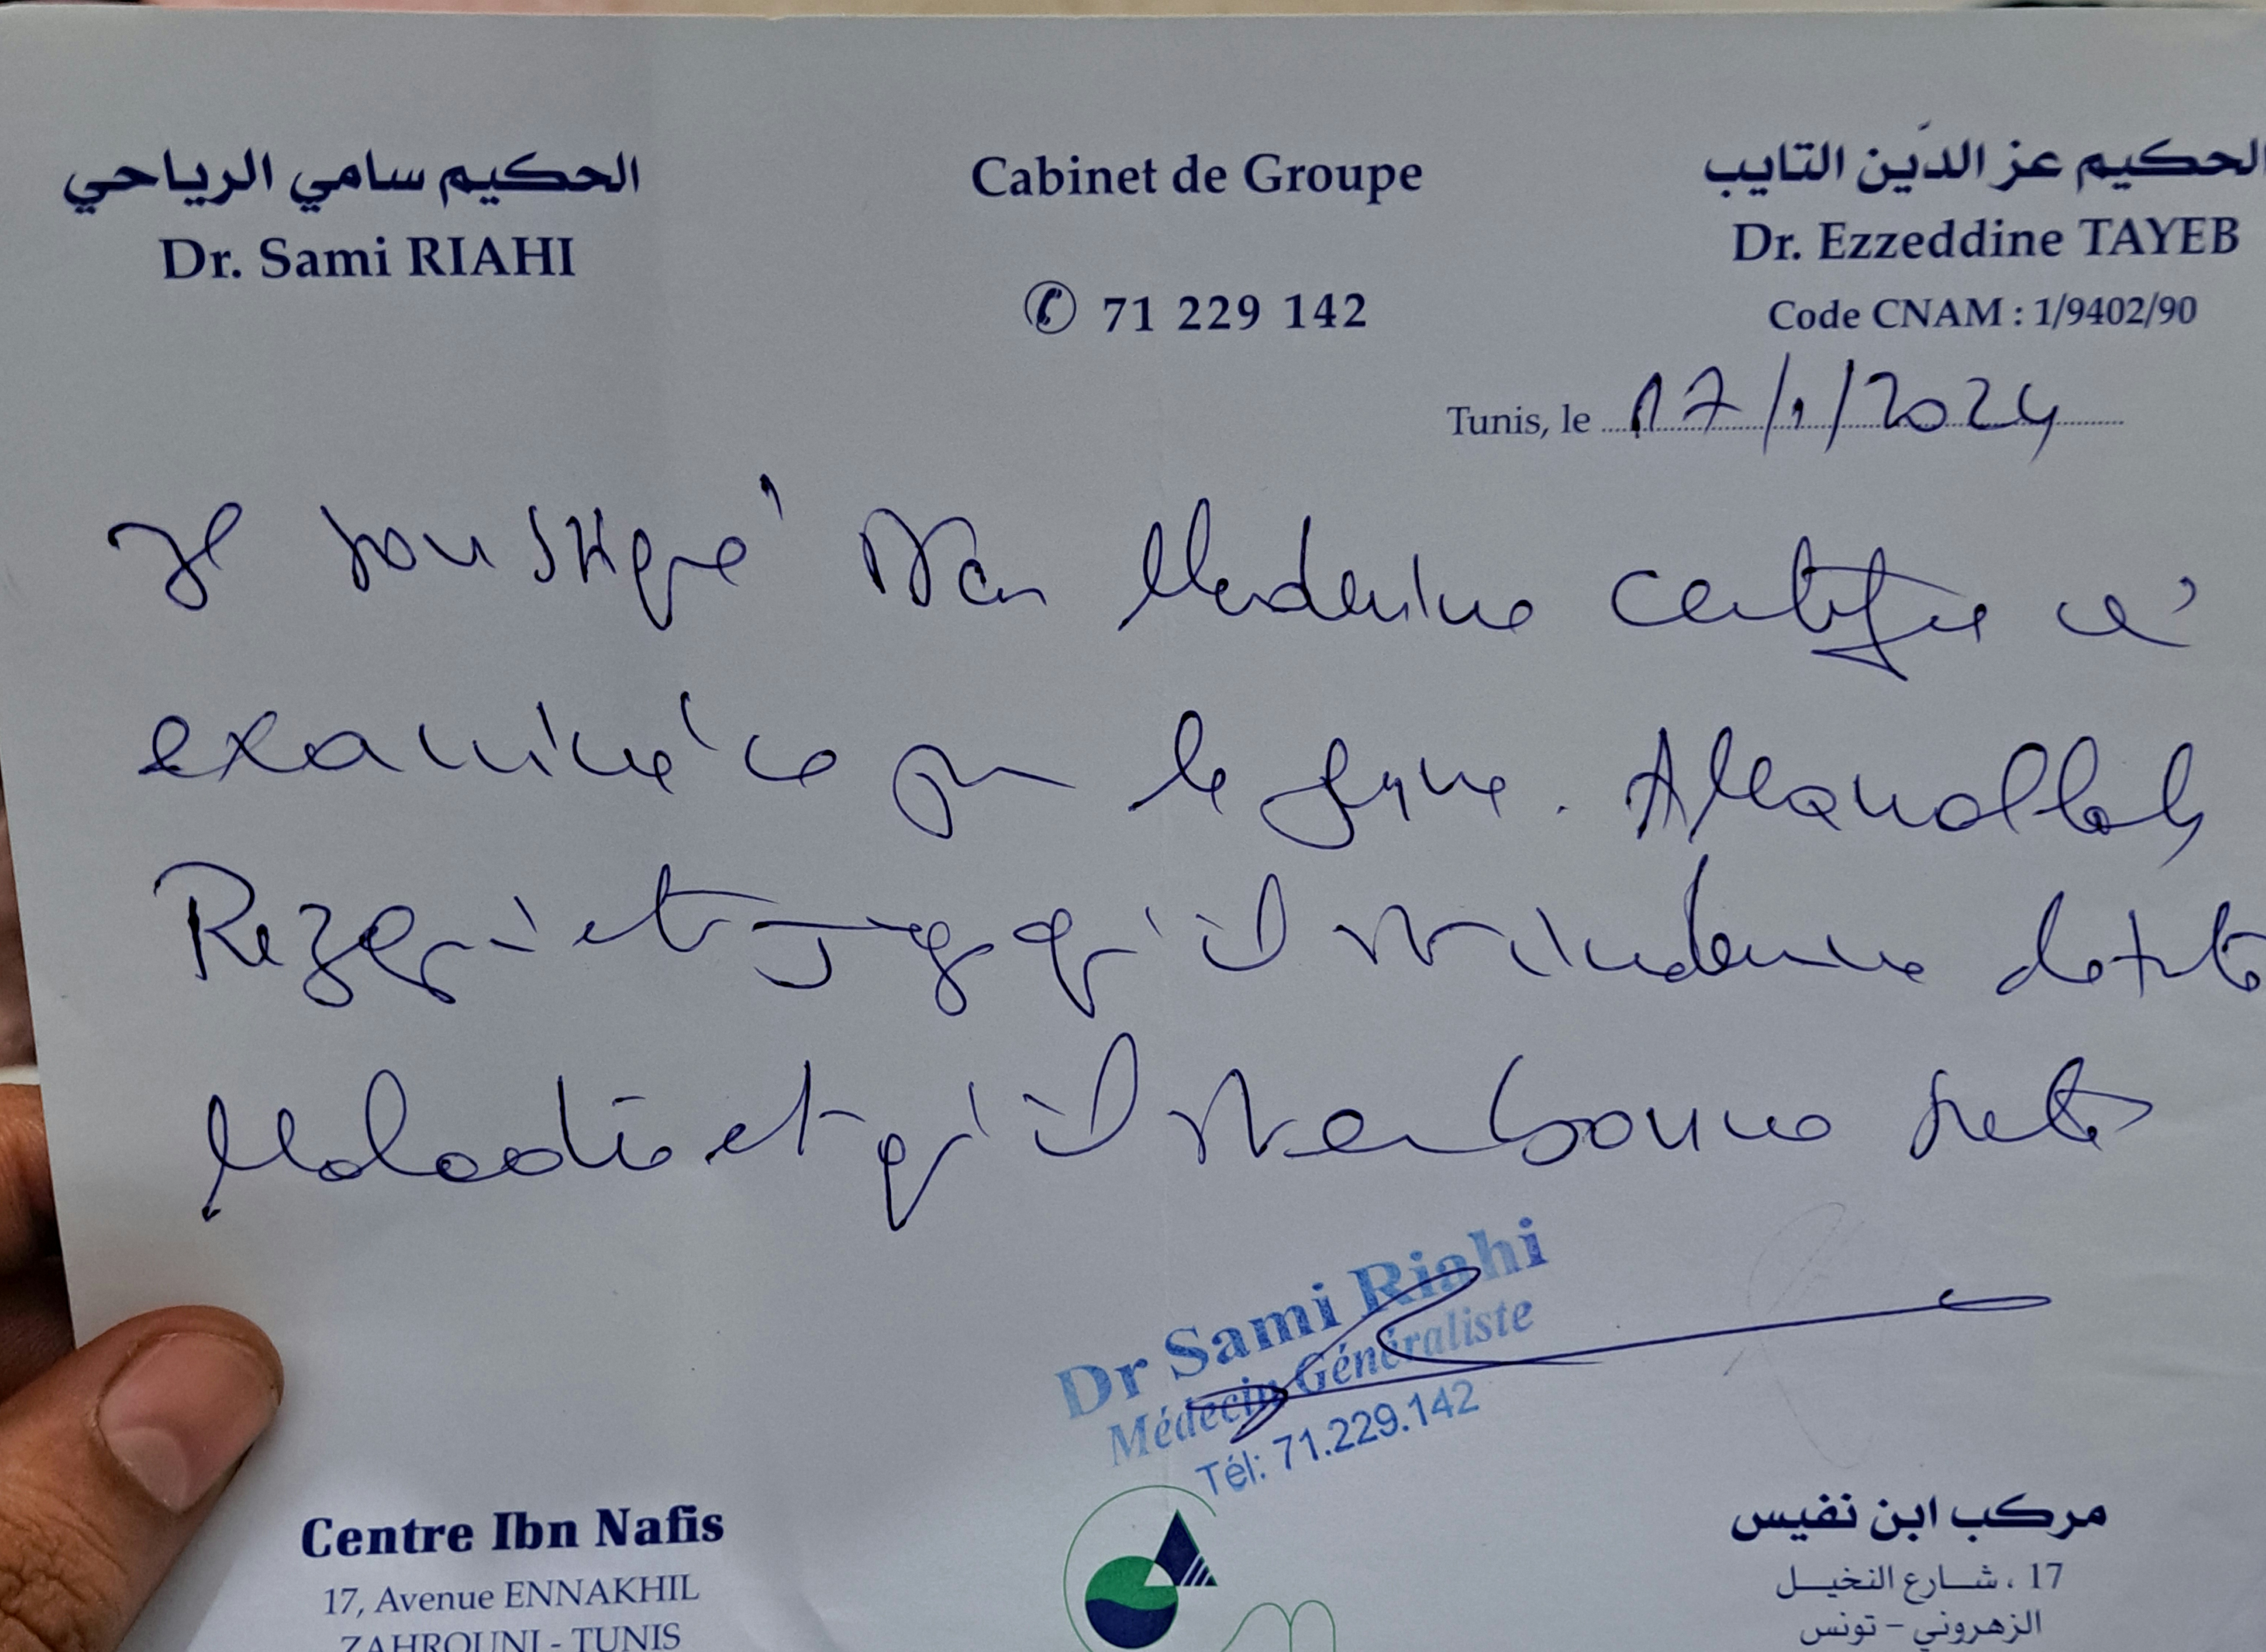 الحكيم سامي الرياحي
Dr. Sami RIAHI
Cabinet de Groupe
71 229 142
الحكيم عز الدّين التايب
Dr. Ezzeddine TAYEB
Code CNAM : 1/9402/90
Tunis, le 17/1/2024
Je soussigné Dr en Médecine certifie
examiné ce jour le jeune. 
Rezgui et juge qu'il est indemne de toute
Maladie et qu'il est en bonne santé
Dr Sami Riahi
Médecin Généraliste
Tél: 71.229.142
Centre Ibn Nafis
17, Avenue ENNAKHIL
ZAHROUNI - TUNIS
مركب ابن نفيس
17 ، شارع النخيل
الزهروني - تونس